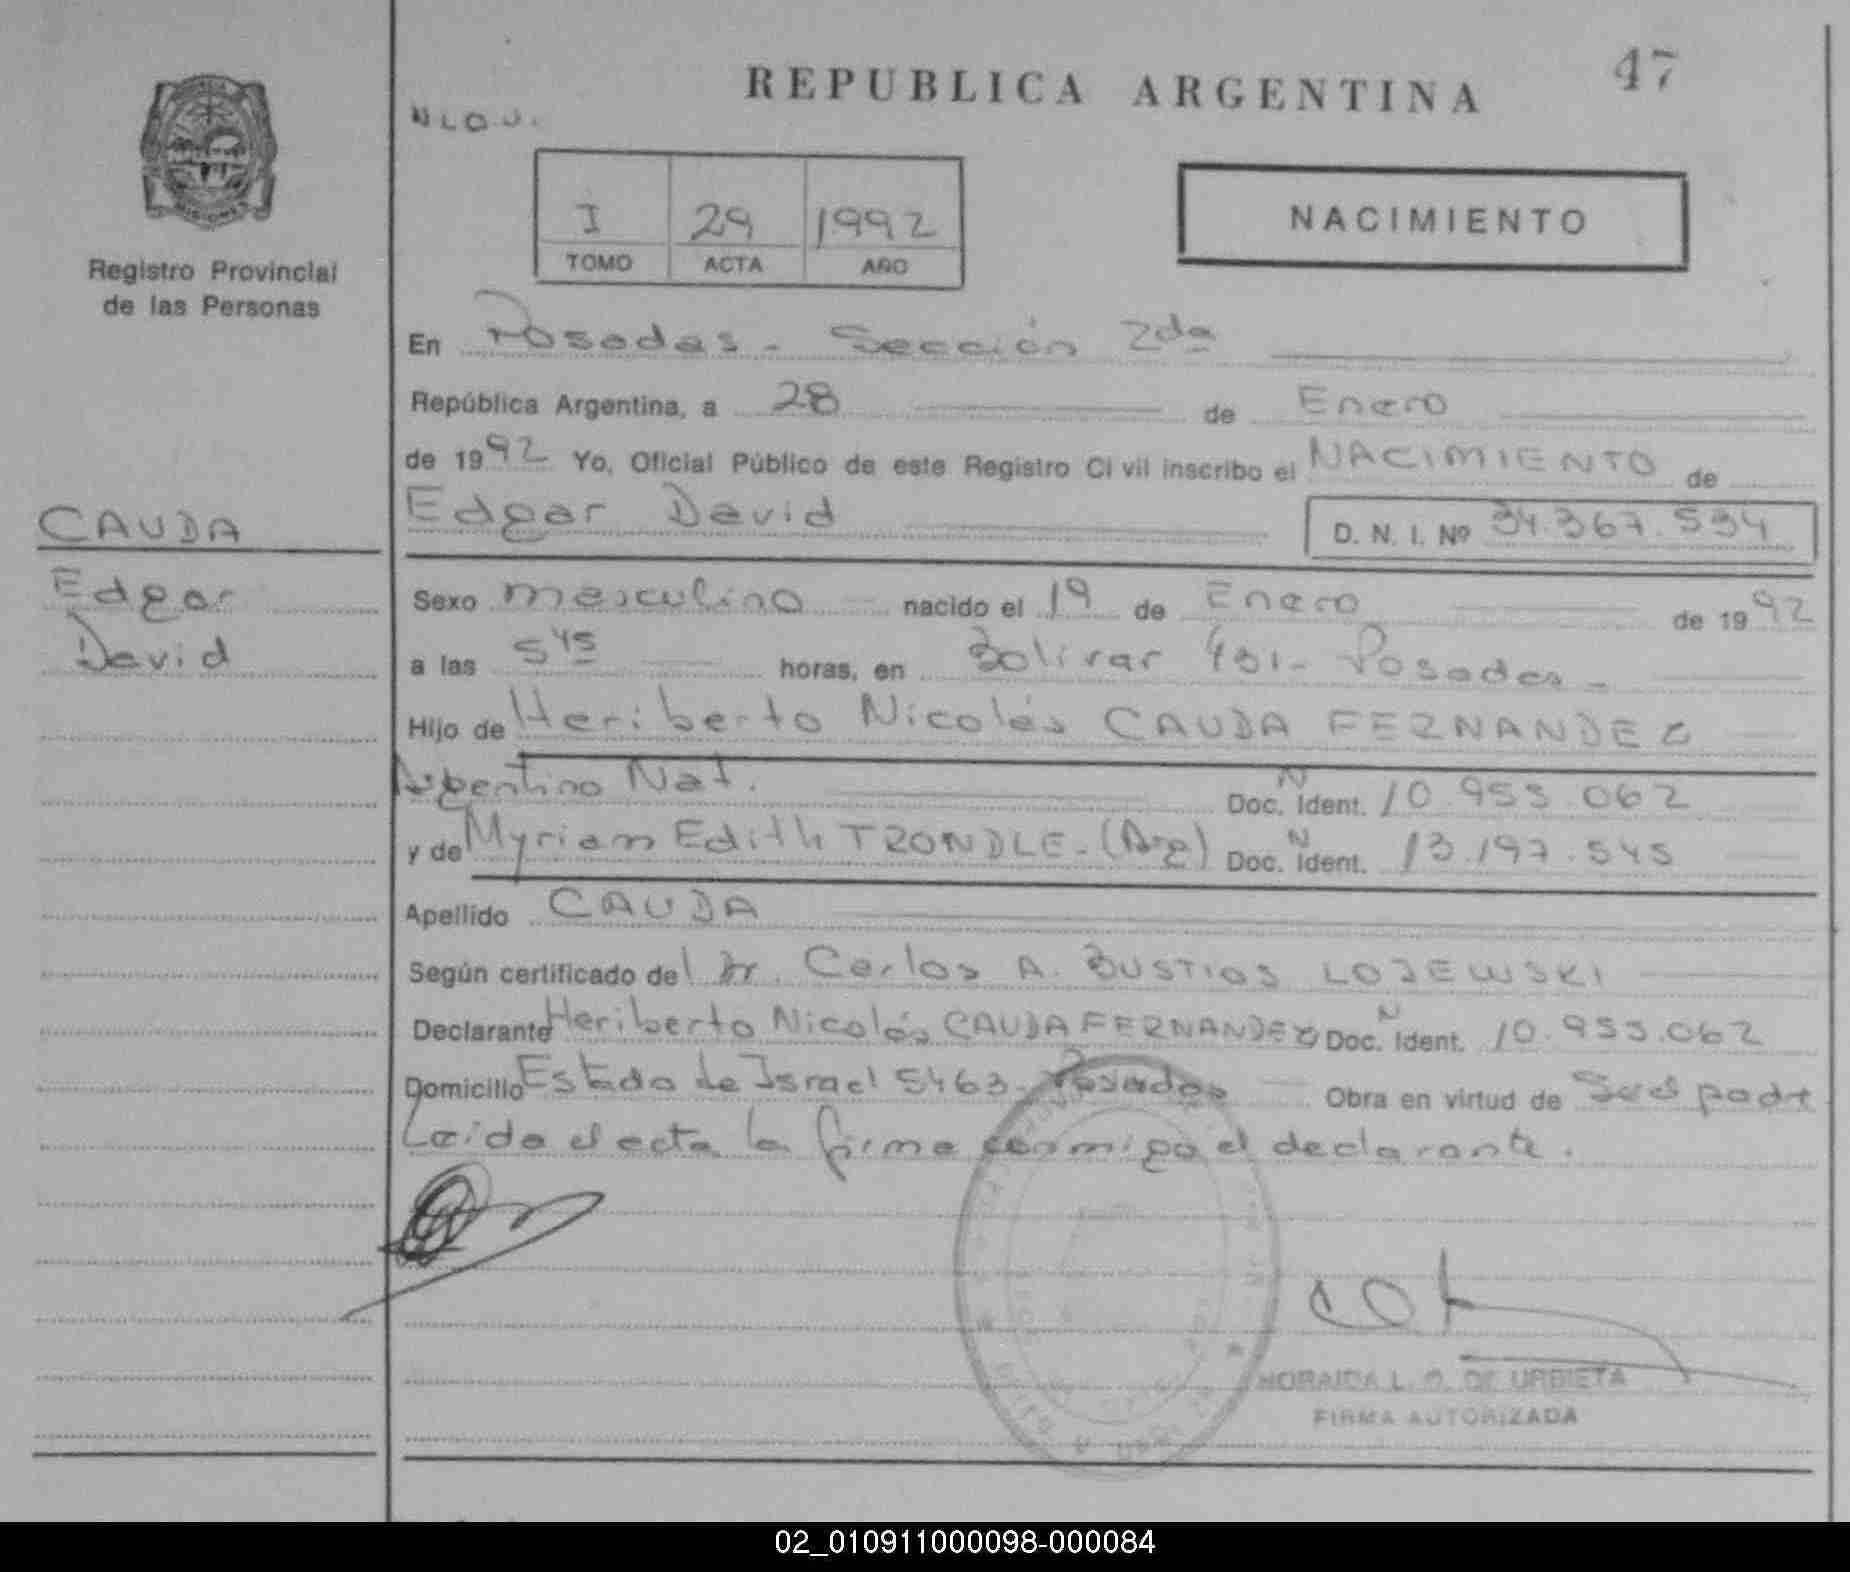 47
REPUBLICA ARGENTINA
N.L.O.U.
I 29 1992
TOMO ACTA AÑO
NACIMIENTO
MISIONES
Registro Provincial
de las Personas
En Posadas - Sección 2da
República Argentina, a 28 de Enero
de 1992 Yo, Oficial Público de este Registro Ci vil inscribo el NACIMIENTO de
CAUDA
Edgar
David
Edgar David D. N. I. Nº 34.367.534
Sexo masculino nacido el 19 de Enero de 1992
a las 5 45 horas, en Bolivar 431 - Posadas -
Hijo de Heriberto Nicolás CAUDA FERNANDEZ
Argentino Nat. Doc. N Ident. 10.953.062
y de Myriam Edith TRONDLE - (Arg) Doc. N Ident. 13.197.545
Apellido CAUDA
Según certificado del Dr. Carlos A. BUSTIOS LOJEWSKI
Declarante Heriberto Nicolás CAUDA FERNANDEZ Doc. N Ident. 10.953.062
Domicilio Estado de Israel 5463 - Posadas Obra en virtud de Ser el padre
Leida el acta la firma conmigo el declarante.
HORAIDA L. O. DE URBIETA
FIRMA AUTORIZADA
02_010911000098-000084